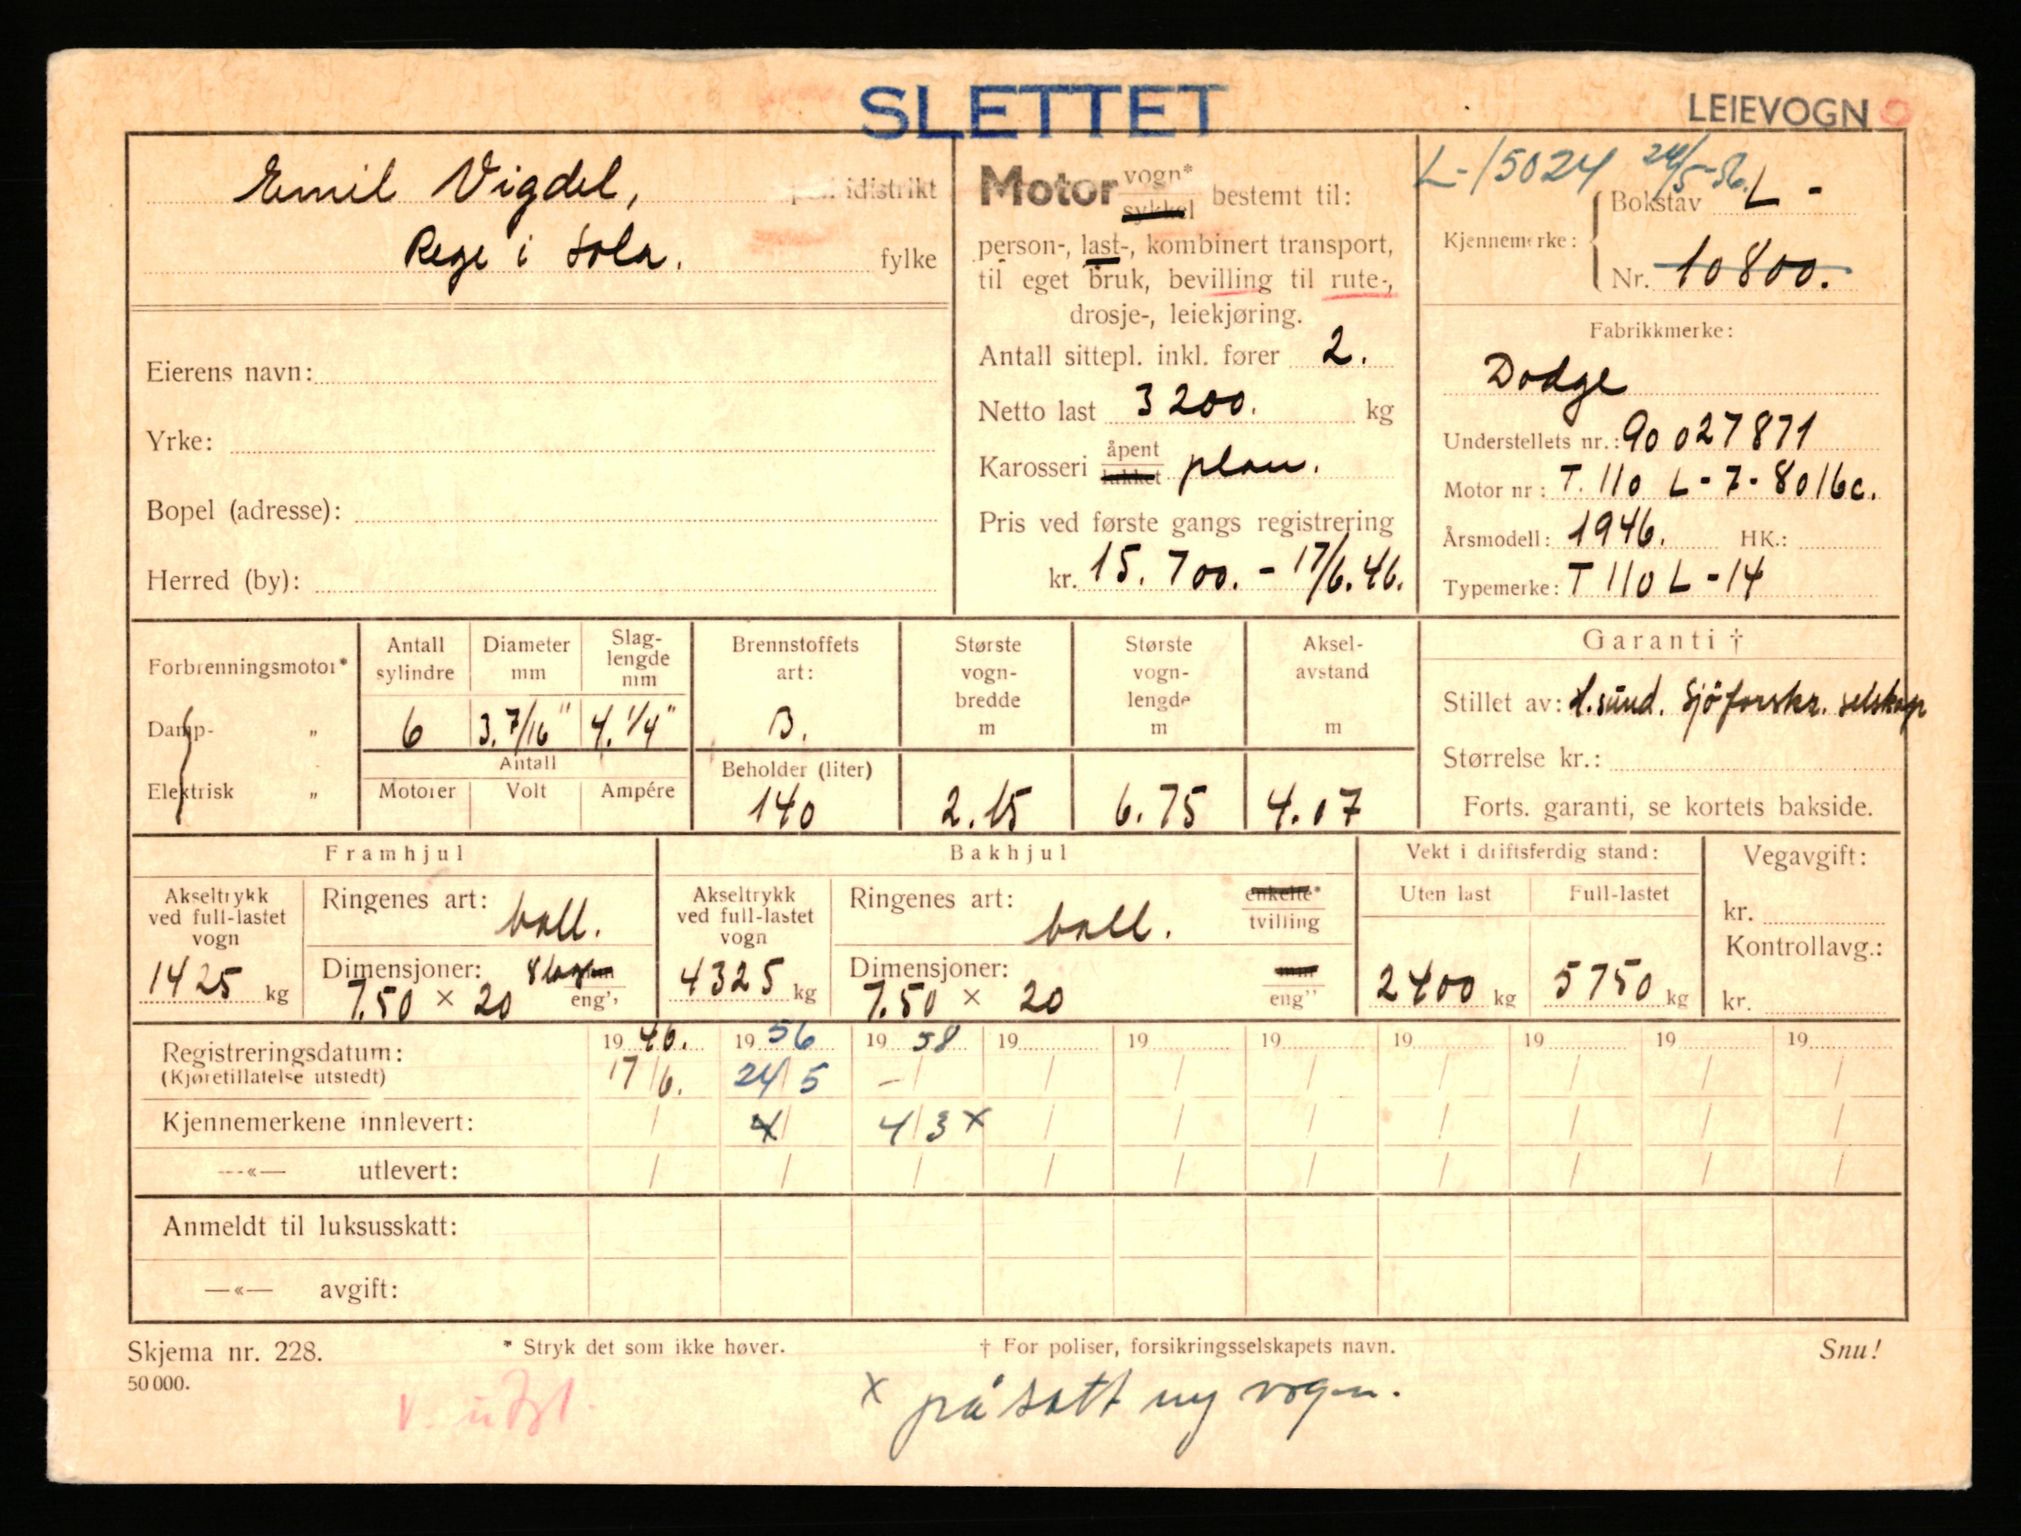 SLETTET
LEIEVOGN
Emil Vigdel, idistrikt
Rege i Sola. fylke
Eierens navn:
Yrke:
Bopel (adresse):
Herred (by):
Motor vogn* sykkel bestemt til:
person-, last-, kombinert transport,
til eget bruk, bevilling til rute-,
drosje-, leiekjøring.
Antall sittepl. inkl. fører 2.
Netto last 3200. kg
Karosseri åpent lukket plan.
Pris ved første gangs registrering
kr. 15.700.- 17/6.46.
L-15024 24/5-56.
Kjennemerke: Bokstav L -
Nr. 10800.
Fabrikkmerke:
Dodge
Understellets nr.: 90027871
Motor nr: T. 110 L-7-8016c.
Årsmodell: 1946. HK.:
Typemerke: T 110 L-14
Forbrenningsmotor*
Damp- „
Elektrisk „
Antall sylindre 6
Diameter mm 3.7/16"
Slag-lengde mm 4.1/4"
Antall
Motorer Volt Ampére
Brennstoffets art: B.
Beholder (liter) 140
Største vogn-bredde m 2.15
Største vogn-lengde m 6.75
Aksel-avstand m 4.07
Garanti †
Stillet av: H.sund. Sjøforskr. selskap
Størrelse kr.:
Forts. garanti, se kortets bakside.
Framhjul
Akseltrykk ved full-lastet vogn 1425 kg
Ringenes art: ball.
Dimensjoner: 7.50 × 20 eng''
Bakhjul
Akseltrykk ved full-lastet vogn 4325 kg
Ringenes art: ball. enkelte* tvilling
Dimensjoner: 7.50 × 20 eng''
Vekt i driftsferdig stand:
Uten last 2400 kg
Full-lastet 5750 kg
Vegavgift:
kr.
Kontrollavg.:
kr.
Registreringsdatum: 1946. 1956 1958 19 19 19 19 19 19 19
(Kjøretillatelse utstedt) 17/6. 24/5 -/ / / / / / / /
Kjennemerkene innlevert: / x/ 4/3 x / / / / / / /
—«— utlevert: / / / / / / / / / /
Anmeldt til luksusskatt:
—«— avgift:
Skjema nr. 228.
50 000.
* Stryk det som ikke høver.
† For poliser, forsikringsselskapets navn.
Snu!
x påsatt ny vogn.